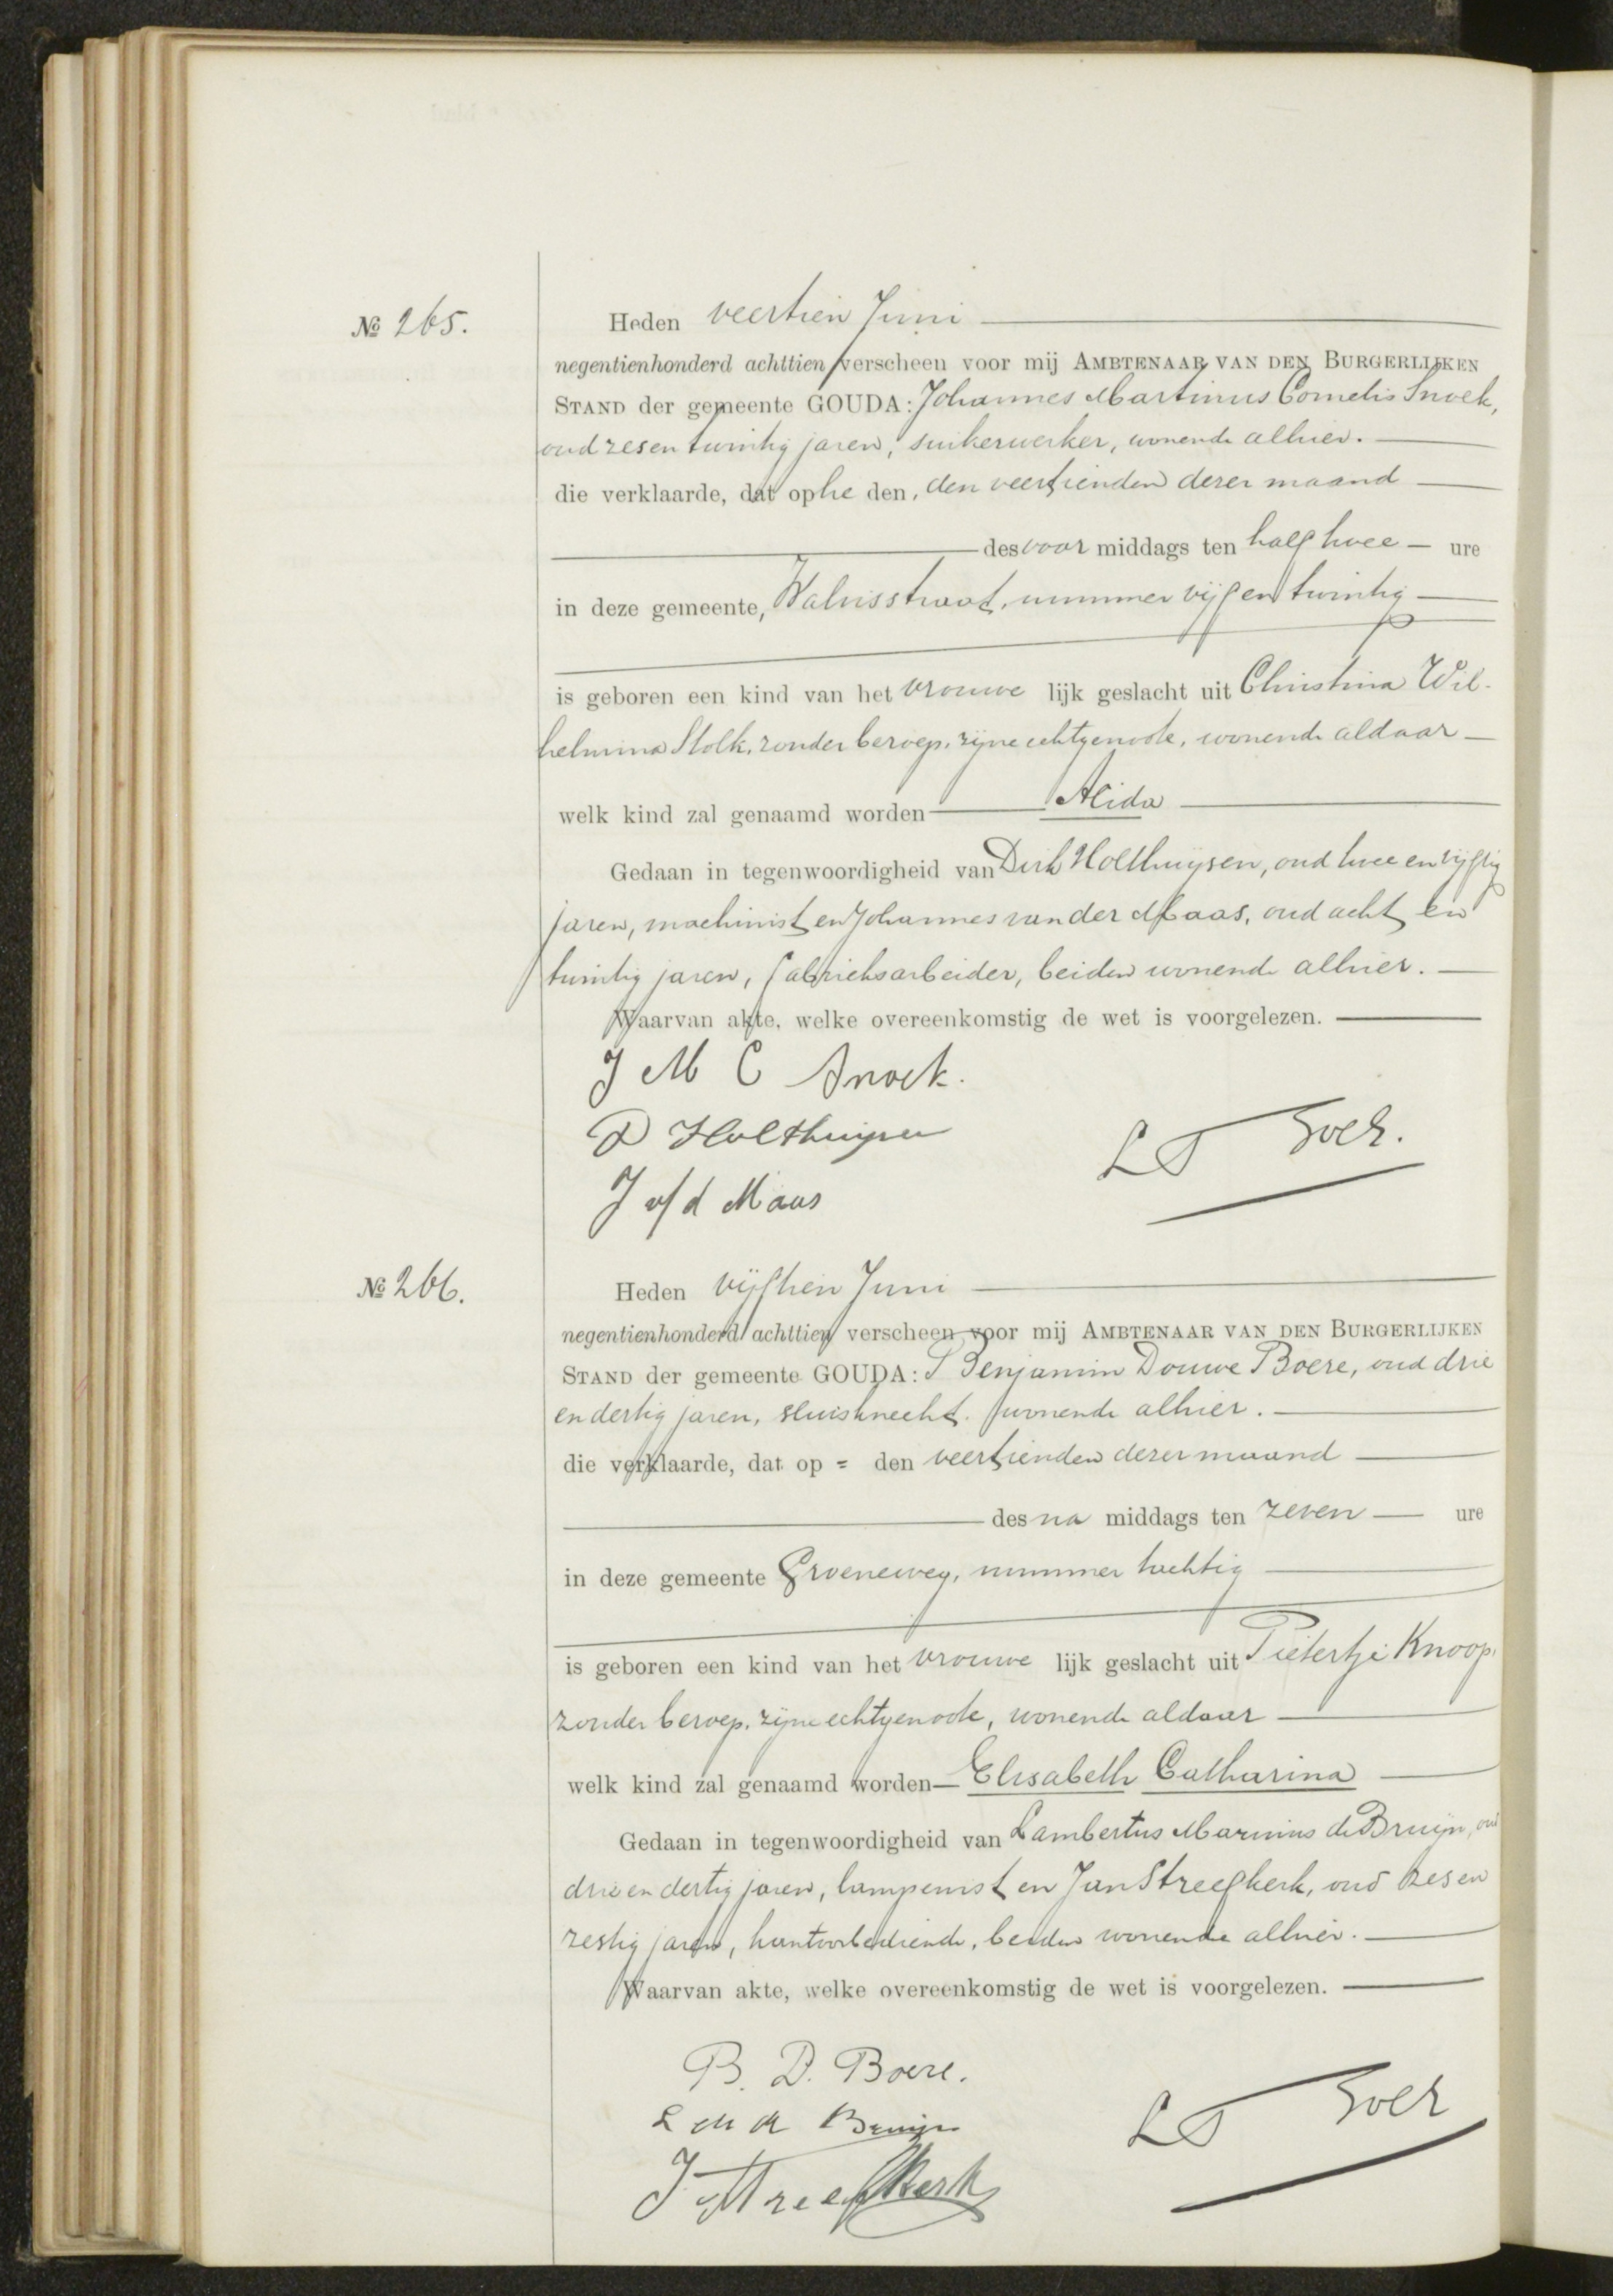 № 265.
Heden veertien Juni
negentienhonderd achttien verscheen voor mij AMBTENAAR VAN DEN BURGERLIJKEN
STAND der gemeente GOUDA: Johannes Martinus Cornelis Snoek,
oud zes en twintig jaren, suikerwerker, wonende alhier.
die verklaarde, dat op he den, den veertienden dezer maand
des voor middags ten half twee ure
in deze gemeente, Walvisstraat, nummer vijf en twintig
is geboren een kind van het vrouwe lijk geslacht uit Christina Wil-
helmina Stolk, zonder beroep, zijne echtgenoote, wonende aldaar
welk kind zal genaamd worden Alida
Gedaan in tegenwoordigheid van Dirk Holthuijsen, oud twee en vijftig
jaren, machinist en Johannes van der Maas, oud acht en
twintig jaren, fabrieksarbeider, beiden wonende alhier.
Waarvan akte, welke overeenkomstig de wet is voorgelezen.
J M C Snoek.
D Holthuijsen
J v/d Maas
№ 266.
Heden vijftien Juni
negentienhonderd achttien verscheen voor mij AMBTENAAR VAN DEN BURGERLIJKEN
STAND der gemeente GOUDA: Benjamin Douwe Boere, oud drie
en dertig jaren, sluisknecht, wonende alhier.
die verklaarde, dat op = den veertienden dezer maand
des na middags ten zeven ure
in deze gemeente Groeneweg, nummer tachtig
is geboren een kind van het vrouwe lijk geslacht uit Pietertje Knoop,
zonder beroep, zijne echtgenoote, wonende aldaar
welk kind zal genaamd worden Elisabeth Catharina
Gedaan in tegenwoordigheid van Lambertus Marinus de Bruijn, oud
drie en dertig jaren, lampenist en Jan Streefkerk, oud zes en
zestig jaren, kantoorbediende, beiden wonende alhier.
Waarvan akte, welke overeenkomstig de wet is voorgelezen.
B. D. Boere.
L M de Bruijn
J Streefkerk